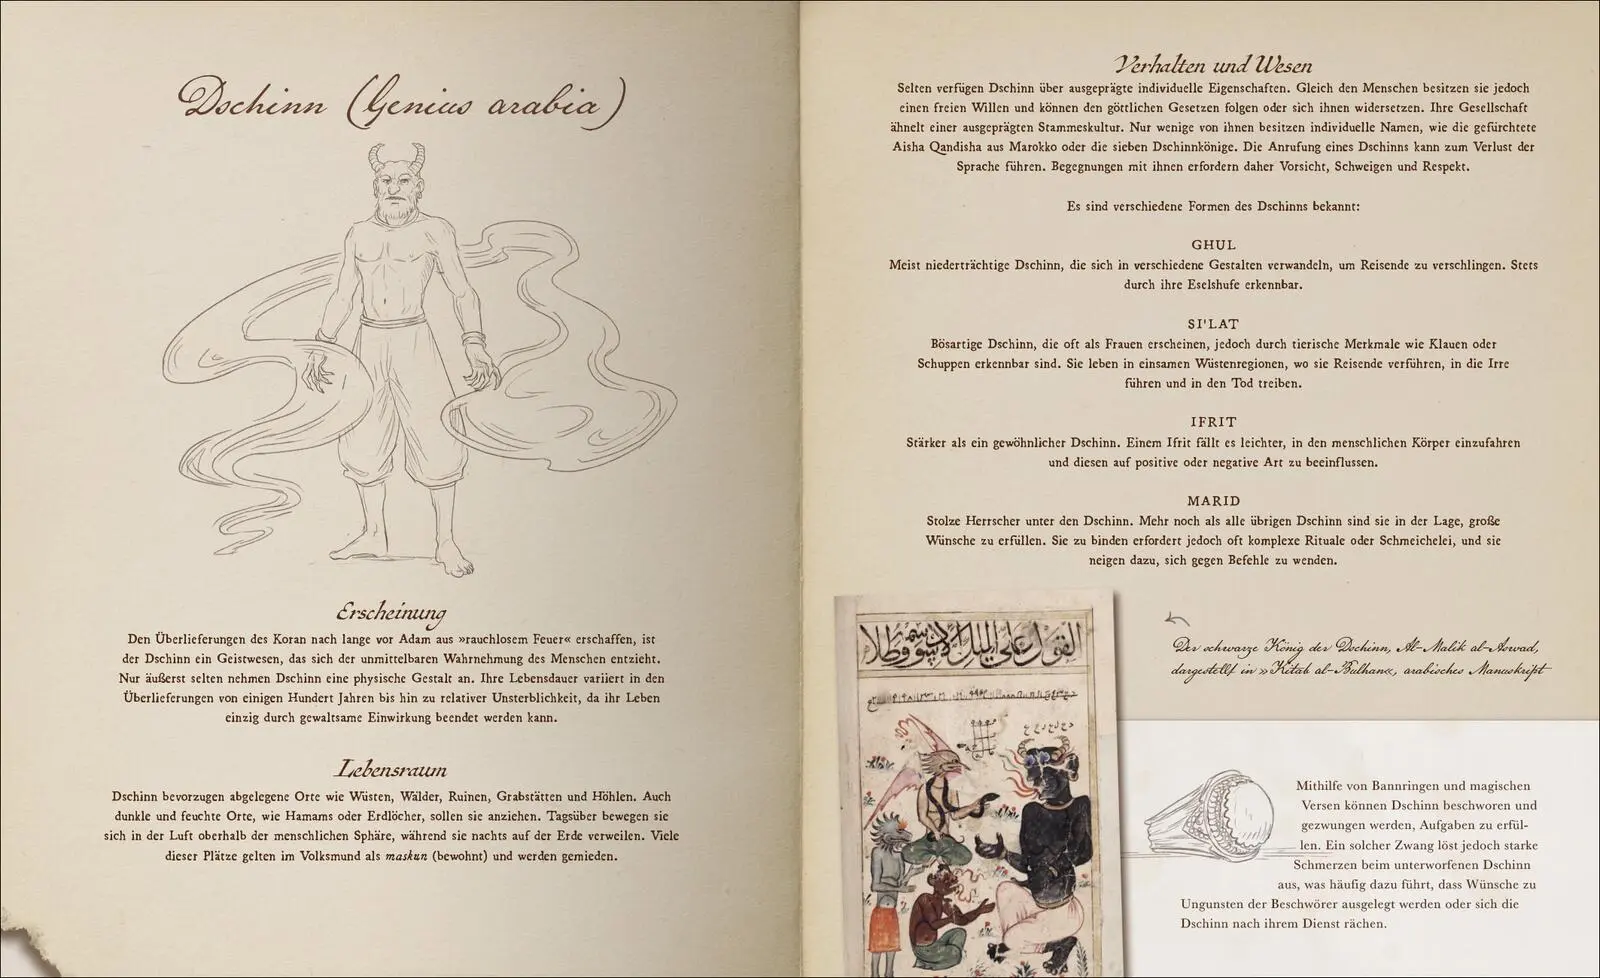 Dschinn (Genius arabia)
Erscheinung
Den Überlieferungen des Koran nach lange vor Adam aus »rauchlosem Feuer« erschaffen, ist
der Dschinn ein Geistwesen, das sich der unmittelbaren Wahrnehmung des Menschen entzieht.
Nur äußerst selten nehmen Dschinn eine physische Gestalt an. Ihre Lebensdauer variiert in den
Überlieferungen von einigen Hundert Jahren bis hin zu relativer Unsterblichkeit, da ihr Leben
einzig durch gewaltsame Einwirkung beendet werden kann.
Lebensraum
Dschinn bevorzugen abgelegene Orte wie Wüsten, Wälder, Ruinen, Grabstätten und Höhlen. Auch
dunkle und feuchte Orte, wie Hamams oder Erdlöcher, sollen sie anziehen. Tagsüber bewegen sie
sich in der Luft oberhalb der menschlichen Sphäre, während sie nachts auf der Erde verweilen. Viele
dieser Plätze gelten im Volksmund als maskun (bewohnt) und werden gemieden.
Verhalten und Wesen
Selten verfügen Dschinn über ausgeprägte individuelle Eigenschaften. Gleich den Menschen besitzen sie jedoch
einen freien Willen und können den göttlichen Gesetzen folgen oder sich ihnen widersetzen. Ihre Gesellschaft
ähnelt einer ausgeprägten Stammeskultur. Nur wenige von ihnen besitzen individuelle Namen, wie die gefürchtete
Aisha Qandisha aus Marokko oder die sieben Dschinnkönige. Die Anrufung eines Dschinns kann zum Verlust der
Sprache führen. Begegnungen mit ihnen erfordern daher Vorsicht, Schweigen und Respekt.
Es sind verschiedene Formen des Dschinns bekannt:
GHUL
Meist niederträchtige Dschinn, die sich in verschiedene Gestalten verwandeln, um Reisende zu verschlingen. Stets
durch ihre Eselshufe erkennbar.
SI'LAT
Bösartige Dschinn, die oft als Frauen erscheinen, jedoch durch tierische Merkmale wie Klauen oder
Schuppen erkennbar sind. Sie leben in einsamen Wüstenregionen, wo sie Reisende verführen, in die Irre
führen und in den Tod treiben.
IFRIT
Stärker als ein gewöhnlicher Dschinn. Einem Ifrit fällt es leichter, in den menschlichen Körper einzufahren
und diesen auf positive oder negative Art zu beeinflussen.
MARID
Stolze Herrscher unter den Dschinn. Mehr noch als alle übrigen Dschinn sind sie in der Lage, große
Wünsche zu erfüllen. Sie zu binden erfordert jedoch oft komplexe Rituale oder Schmeichelei, und sie
neigen dazu, sich gegen Befehle zu wenden.
القول على الملك
Der schwarze König der Dschinn, Al-Malik al-Aswad,
dargestellt in »Kitab al-Bulhan«, arabisches Manuskript
Mithilfe von Bannringen und magischen
Versen können Dschinn beschworen und
gezwungen werden, Aufgaben zu erfül-
len. Ein solcher Zwang löst jedoch starke
Schmerzen beim unterworfenen Dschinn
aus, was häufig dazu führt, dass Wünsche zu
Ungunsten der Beschwörer ausgelegt werden oder sich die
Dschinn nach ihrem Dienst rächen.